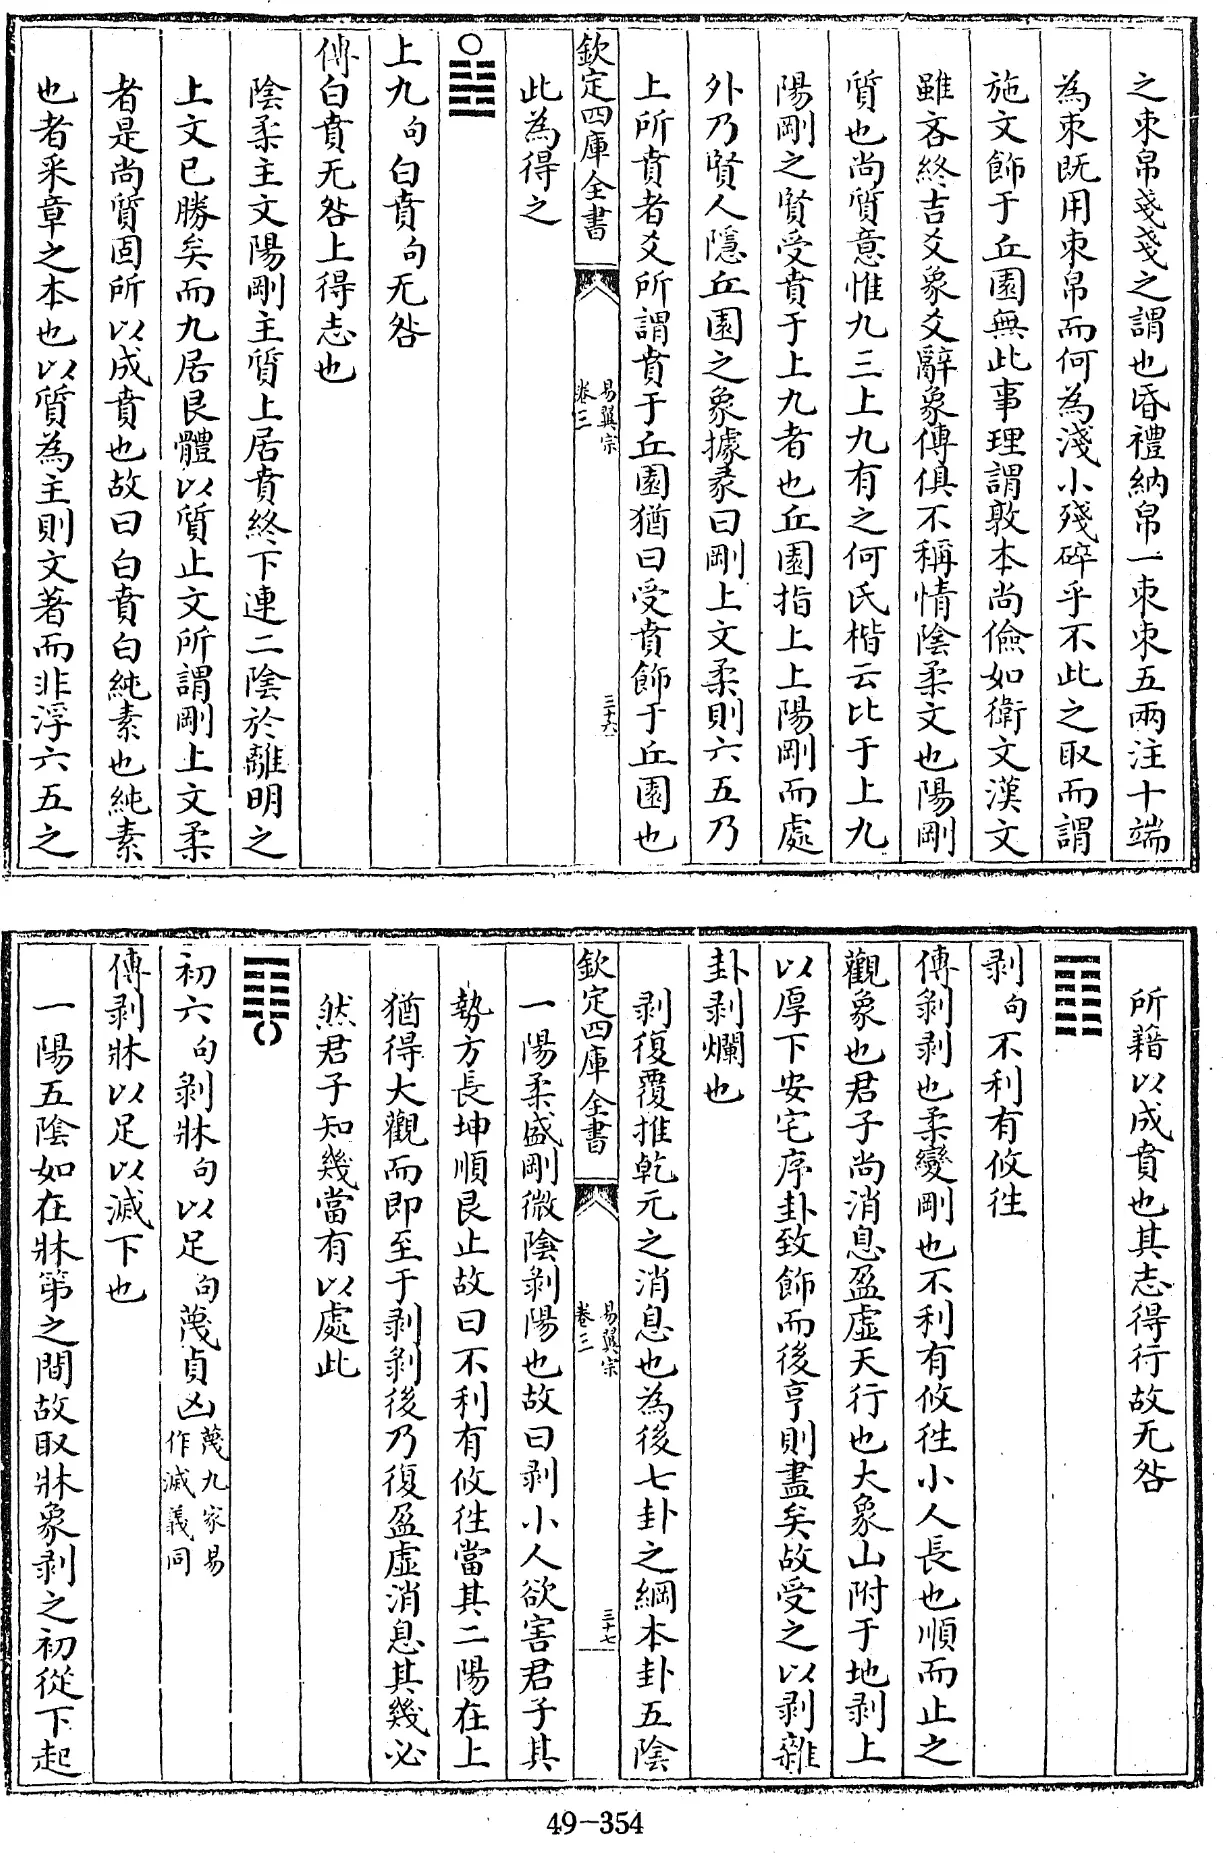 之束帛戔戔之謂也昏禮納帛一束束五兩注十端
為束既用束帛而何為淺小殘碎乎不此之取而謂
施文飾于丘園無此事理謂敦本尚儉如衛文漢文
雖吝終吉爻象爻辭象傳俱不稱情陰柔文也陽剛
質也尚質意惟九三上九有之何氏楷云比于上九
陽剛之賢受賁于上九者也丘園指上上陽剛而處
外乃賢人隱丘園之象據彖曰剛上文柔則六五乃
上所賁者爻所謂賁于丘園猶曰受賁飾于丘園也
欽定四庫全書
易翼宗
卷三
三十六
此為得之
上九句白賁句无咎
傳白賁无咎上得志也
陰柔主文陽剛主質上居賁終下連二陰於離明之
上文已勝矣而九居艮體以質止文所謂剛上文柔
者是尚質固所以成賁也故曰白賁白純素也純素
也者釆章之本也以質為主則文著而非浮六五之
所藉以成賁也其志得行故无咎
剥句不利有攸往
傳剥剥也柔變剛也不利有攸往小人長也順而止之
觀象也君子尚消息盈虛天行也大象山附于地剥上
以厚下安宅序卦致飾而後亨則盡矣故受之以剥雜
卦剥爛也
剥復覆推乾元之消息也為後七卦之綱本卦五陰
欽定四庫全書
易翼宗
卷三
三十七
一陽柔盛剛微陰剥陽也故曰剥小人欲害君子其
勢方長坤順艮止故曰不利有攸往當其二陽在上
猶得大觀而即至于剥剥後乃復盈虛消息其幾必
然君子知幾當有以處此
初六句剥牀句以足句蔑貞凶蔑九家易作滅義同
傳剥牀以足以滅下也
一陽五陰如在牀第之間故取牀象剥之初從下起
49-354